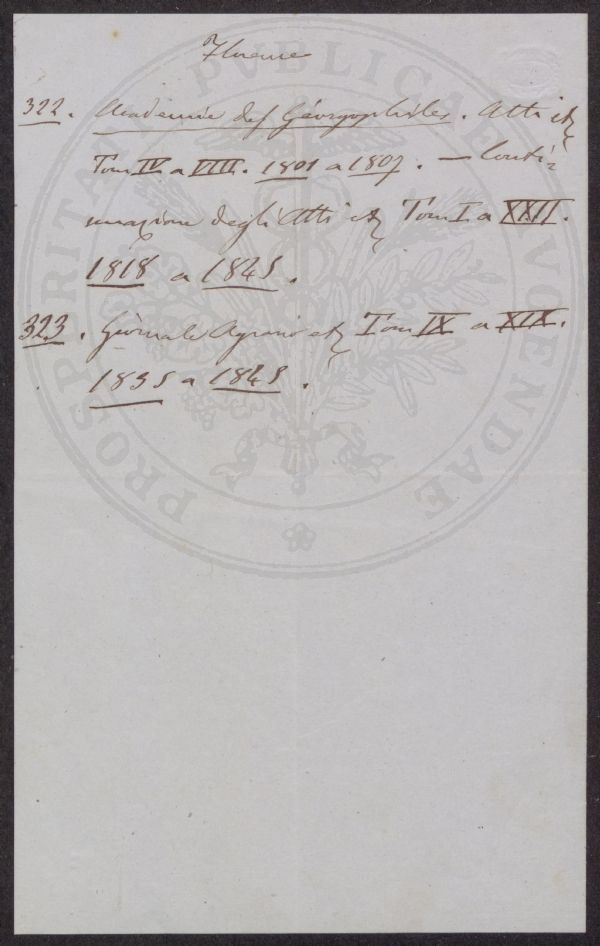 Florence
322. Académie des Géorgophiles. Atti etc
Tom IV a VIII. 1801 a 1807. — Conti-
nuazione degli Atti etc Tom I a XXII.
1818 a 1845.
323. Giornale Agrario etc Tom IX a XIX.
1835 a 1845.
PROSPERITATI PUBLICAE PROVENDAE